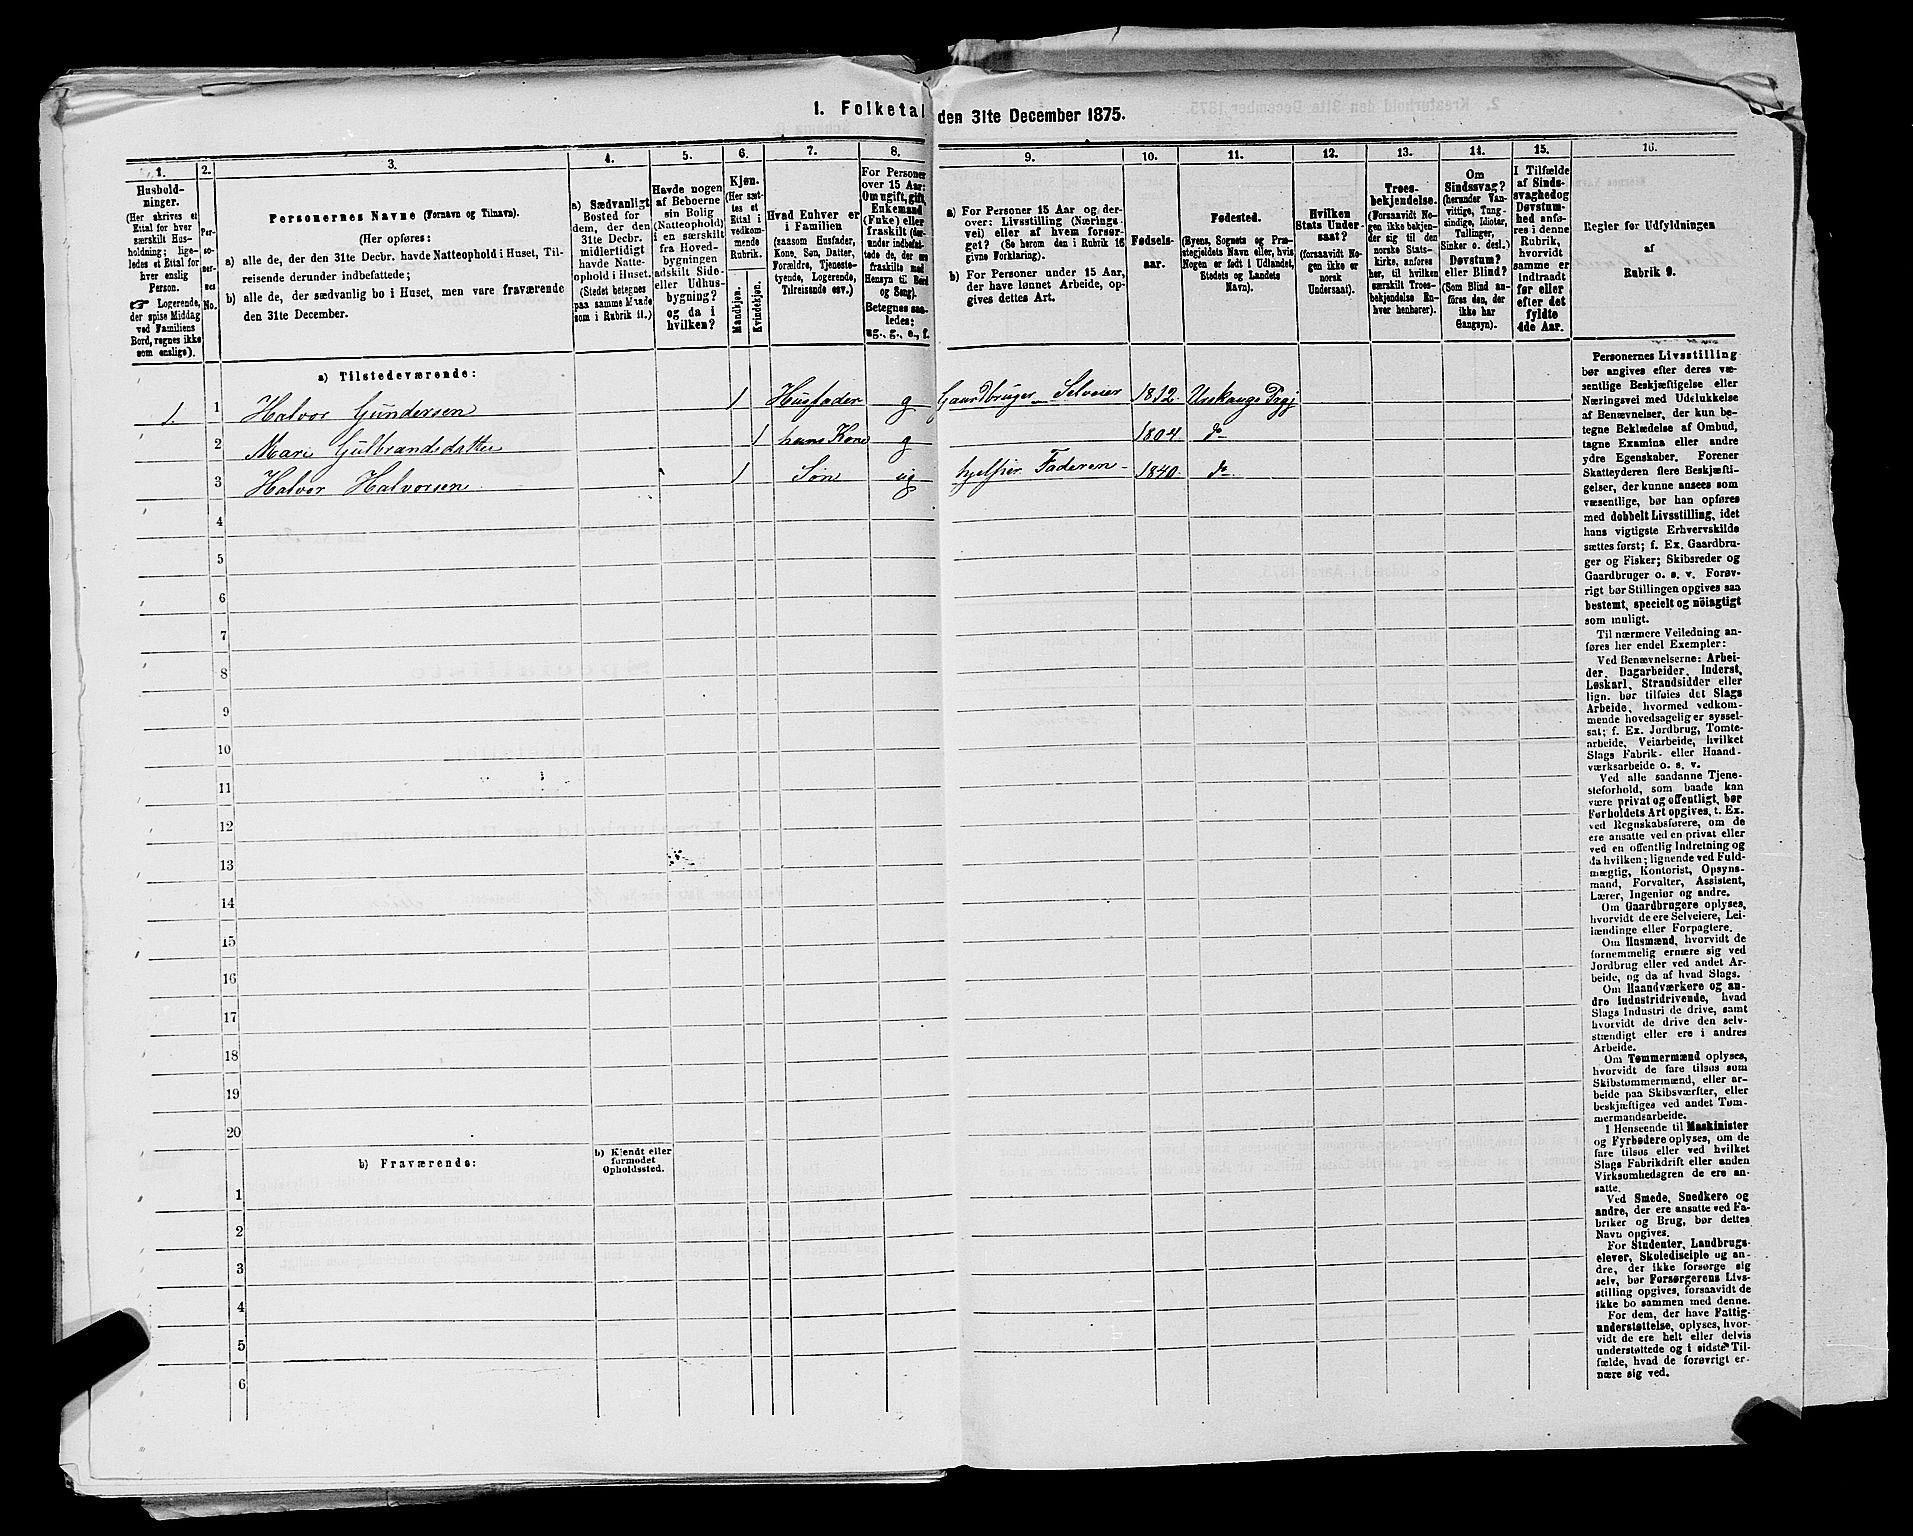 1. Folketal den 31te December 1875.
1.
2.
3.
4.
5.
6.
7.
8.
9.
10.
11.
12.
13.
14.
15.
16.
Hushold-
ninger.
(Her skrives et
Ettal for hver
særskilt Hus-
holdning; lige-
ledes et Ettal for
hver enslig
Person.
☞ Logerende,
der spise Middag
ved Familiens
Bord, regnes ikke
som enslige).
Per-
so-
ner-
nes
No.
Personernes Navne (Fornavn og Tilnavn).
(Her opføres:
a) alle de, der den 31te Decbr. havde Natteophold i Huset, Til-
reisende derunder indbefattede;
b) alle de, der sædvanlig bo i Huset, men vare fraværende
den 31te December.
a) Sædvanligt
Bosted for
dem, der den
31te Decbr.
midlertidigt
havde Natte-
ophold i Huset.
(Stedet betegnes
paa samme Maade
som i Rubrik 11.)
Havde nogen
af Beboerne
sin Bolig
(Natteophold)
i en særskilt
fra Hoved-
bygningen
adskilt Side-
eller Udhus-
bygning?
og da i
hvilken?
Kjøn.
(Her sæt-
tes et
Ettal i
vedkom-
mende
Rubrik.
Mandkjøn.
Kvindekjøn.
Hvad Enhver er
i Familien
(saasom Husfader,
Kone, Søn, Datter,
Forældre, Tjeneste-
tyende, Logerende,
Tilreisende osv.)
For Personer
over 15 Aar:
Om ugift, gift,
Enkemand
(Enke) eller
fraskilt (der-
under indbefat-
tede de, der ere
fraskilte med
Hensyn til Bord
og Seng).
Betegnes saa-
ledes:
ug., g., e., f.
a) For Personer 15 Aar og der-
over: Livsstilling (Nærings-
vei) eller af hvem forsør-
get? (Se herom den i Rubrik 16
givne Forklaring).
b) For Personer under 15 Aar,
der have lønnet Arbeide, op-
gives dettes Art.
Fødsels-
aar.
Fødested.
(Byens, Sognets og Præ-
stegjeldets Navn eller, hvis
Nogen er født i Udlandet,
Stedets og Landets
Navn).
Hvilken
Stats Under-
saat?
(forsaavidt No-
gen ikke er
norsk
Undersaat).
Troes-
bekjendelse.
(Forsaavidt No-
gen ikke bekjen-
der sig til den
norske Stats-
kirke, anføres
her, til hvilken
særskilt Troes-
bekjendelse En-
hver henhører).
Om
Sindssvag?
(herunder Van-
vittige, Tung-
sindige, Idioter,
Tullinger,
Sinker o. desl.)
Døvstum?
eller Blind?
(Som Blind an-
føres den, der
ikke har
Gangsyn).
I Tilfælde
af Sinds-
svaghed og
Døvstum-
hed anfø-
res i denne
Rubrik,
hvorvidt
samme er
indtraadt
før eller
efter det
fyldte
4de Aar.
Regler for Udfyldningen
af
Rubrik 9.
a) Tilstedeværende:
1. 1 Halvor Gundersen 1 Husfader g Gaardbruger Selveier 1812
2 Mari Gulbrandsdatter 1 hans Kone g 1804 do
3 Halvor Halvorsen 1 Søn ug hjelper Faderen 1840 do
4
5
6
7
8
9
10
11
12
13
14
15
16
17
18
19
20
b) Fraværende:
b) Kjendt eller
formodet
Opholdssted.
1
2
3
4
5
6
Personernes Livsstilling
bør angives efter deres væ-
sentlige Beskjæftigelse eller
Næringsvei med Udelukkelse
af Benævnelser, der kun be-
tegne Beklædelse af Ombud,
tagne Examina eller andre
ydre Egenskaber. Forener
Skatteyderen flere Beskjæfti-
gelser, der kunne ansees som
væsentlige, bør han opføres
med dobbelt Livsstilling, idet
hans vigtigste Erhvervskilde
sættes først; f. Ex. Gaardbru-
ger og Fisker; Skibsreder og
Gaardbruger o. s. v. Forøv-
rigt bør Stillingen opgives saa
bestemt, specielt og nöiagtigt
som muligt.
Til nærmere Veiledning an-
føres her endel Exempler:
Ved Benævnelserne: Arbei-
der, Dagarbeider, Inderst,
Løskarl, Strandsidder eller
lign. bør tilføies det Slags
Arbeide, hvormed vedkom-
mende hovedsagelig er syssel-
sat; f. Ex. Jordbrug, Tomte-
arbeide, Veiarbeide, hvilket
Slags Fabrik- eller Haand-
værksarbeide o. s. v.
Ved alle saadanne Tjene-
steforhold, som baade kan
være privat og offentligt, bør
Forholdets Art opgives, t. Ex.
ved Regnskabsførere, om de
ere ansatte ved en privat eller
ved en offentlig Indretning og
da hvilken; lignende ved Fuld-
mægtig, Kontorist, Opsyns-
mand, Forvalter, Assistent,
Lærer, Ingeniør og andre.
Om Gaardbrugere oplyses,
hvorvidt de ere Selveiere, Lei-
lændinge eller Forpagtere.
Om Husmænd, hvorvidt de
fornemmelig ernære sig ved
Jordbrug eller ved andet Ar-
beide, og da af hvad Slags.
Om Haandværkere og an-
dre Industridrivende, hvad
Slags Industri de drive, samt
hvorvidt de drive den selv-
stændigt eller ere i andres
Arbeide.
Om Tømmermænd oplyses,
hvorvidt de fare tilsøs som
Skibstømmermænd, eller ar-
beide paa Skibsværfter, eller
beskjæftiges ved andet Tøm-
mermandsarbeide.
I Henseende til Maskinister
og Fyrbødere oplyses, om de
fare tilsøs eller ved hvilket
Slags Fabrikdrift eller anden
Virksomhedsgren de ere an-
satte.
Ved Smede, Snedkere og
andre, der ere ansatte ved Fa-
briker og Brug, bør dettes
Navn opgives.
For Studenter, Landbrugs-
elever, Skoledisciple og an-
dre, der ikke forsørge sig
selv, bør Forsørgerens Livs-
stilling opgives, forsaavidt de
ikke bo sammen med denne.
For dem, der have Fattig-
understøttelse, oplyses, hvor-
vidt de ere helt eller delvis
understøttede og i sidste Til-
fælde, hvad de forøvrigt er-
nære sig ved.